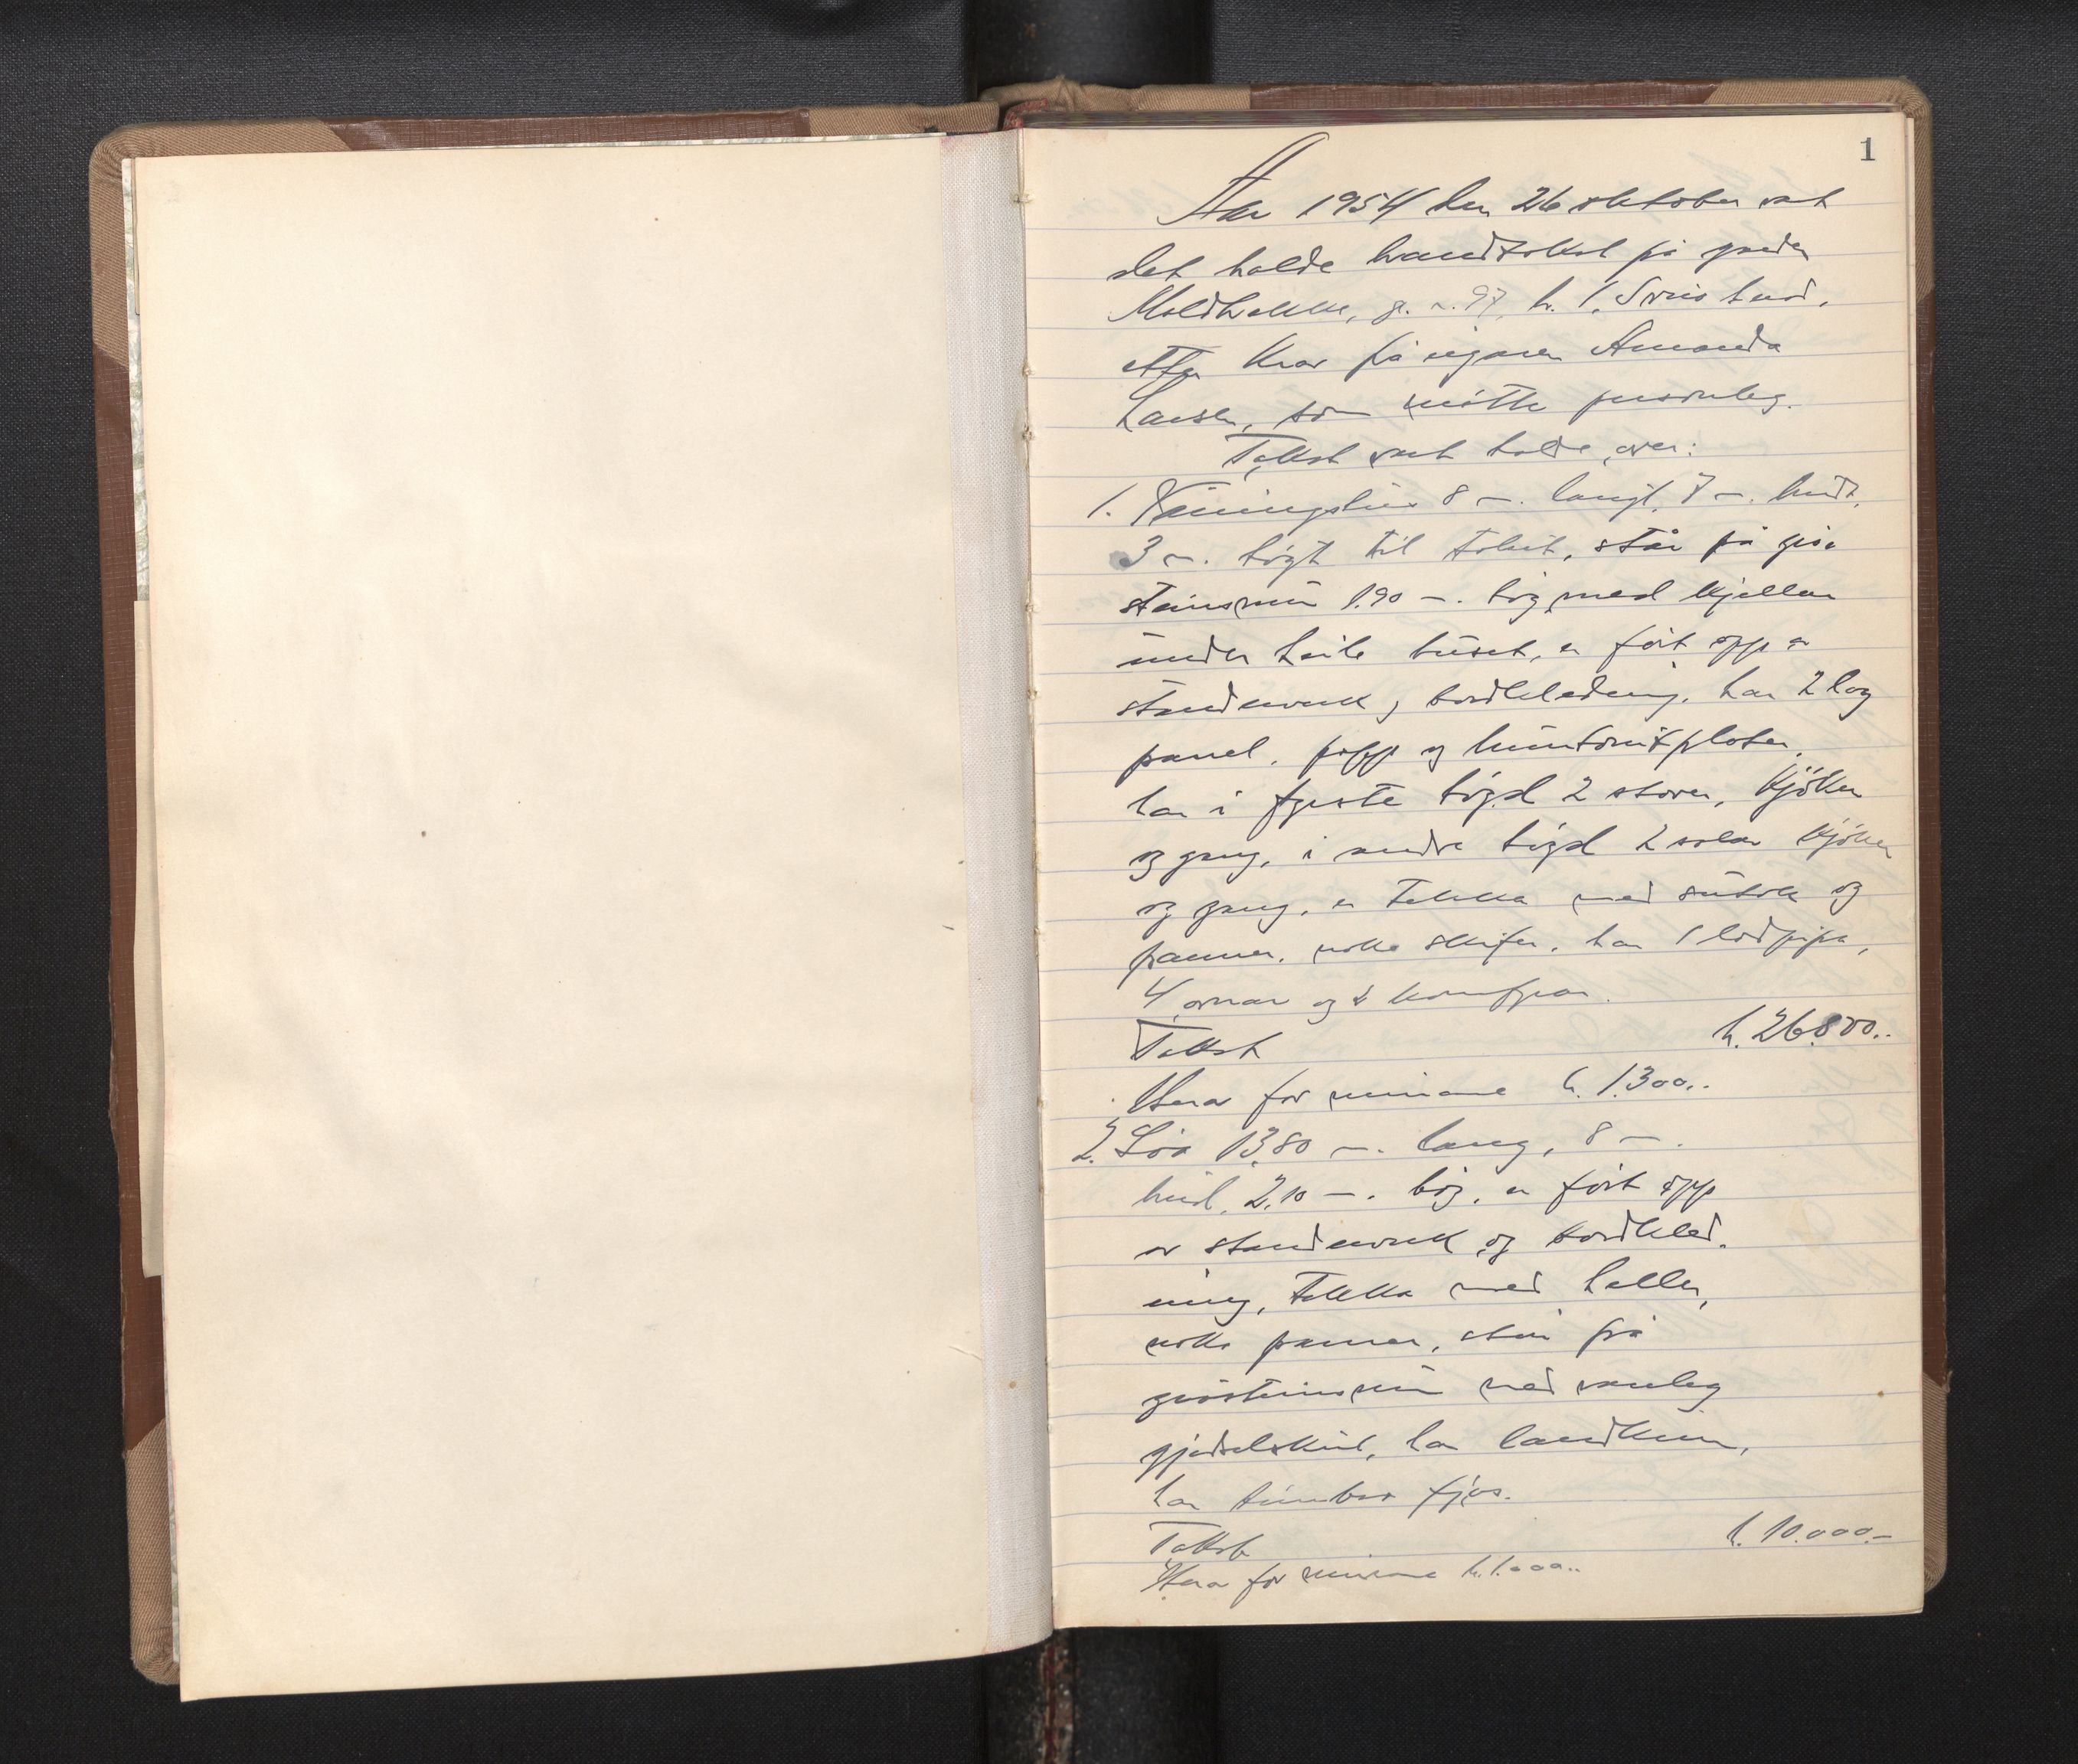 1
År 1954 den 26 oktober vart
det halde brandtakst på garden
Moldbakke, g. n. 97, br. 1,
etter krav frå eigaren Amanda
Larsen, som møtte personleg.
Takst vart halde over:
1. Våningshus 8 m. langt, 7 m. breidt,
3 m. högt til taket, står på grå
steinsmur 1.90 m. hög, med kjellar
under heile huset, er fört opp av
standarverk, bordkledning, har 2 lag
panel, papp og huntonitplater,
har i fyrste högd 2 stover, kjöken
og gang, i andre högd 2 salar kjöken
og gang, er tekka med sutak og
panner, nokke skifer, har 1 lodpipa,
4 omnar og 2 komfyrar.
Takst kr. 26.800..
Herav for murane kr. 1.300..
2. Löa 13,80 m. lang, 8 m.
breid, 2,10 m. hög, er fört opp
av standarverk og bordkled-
ning, tekka med heller,
nokke panner, står på
gråsteinsmur med vanleg
gjødselskut, har landkum,
har timbra fjos.
Takst kr. 10.000.-
Herav for murane kr. 1.000..